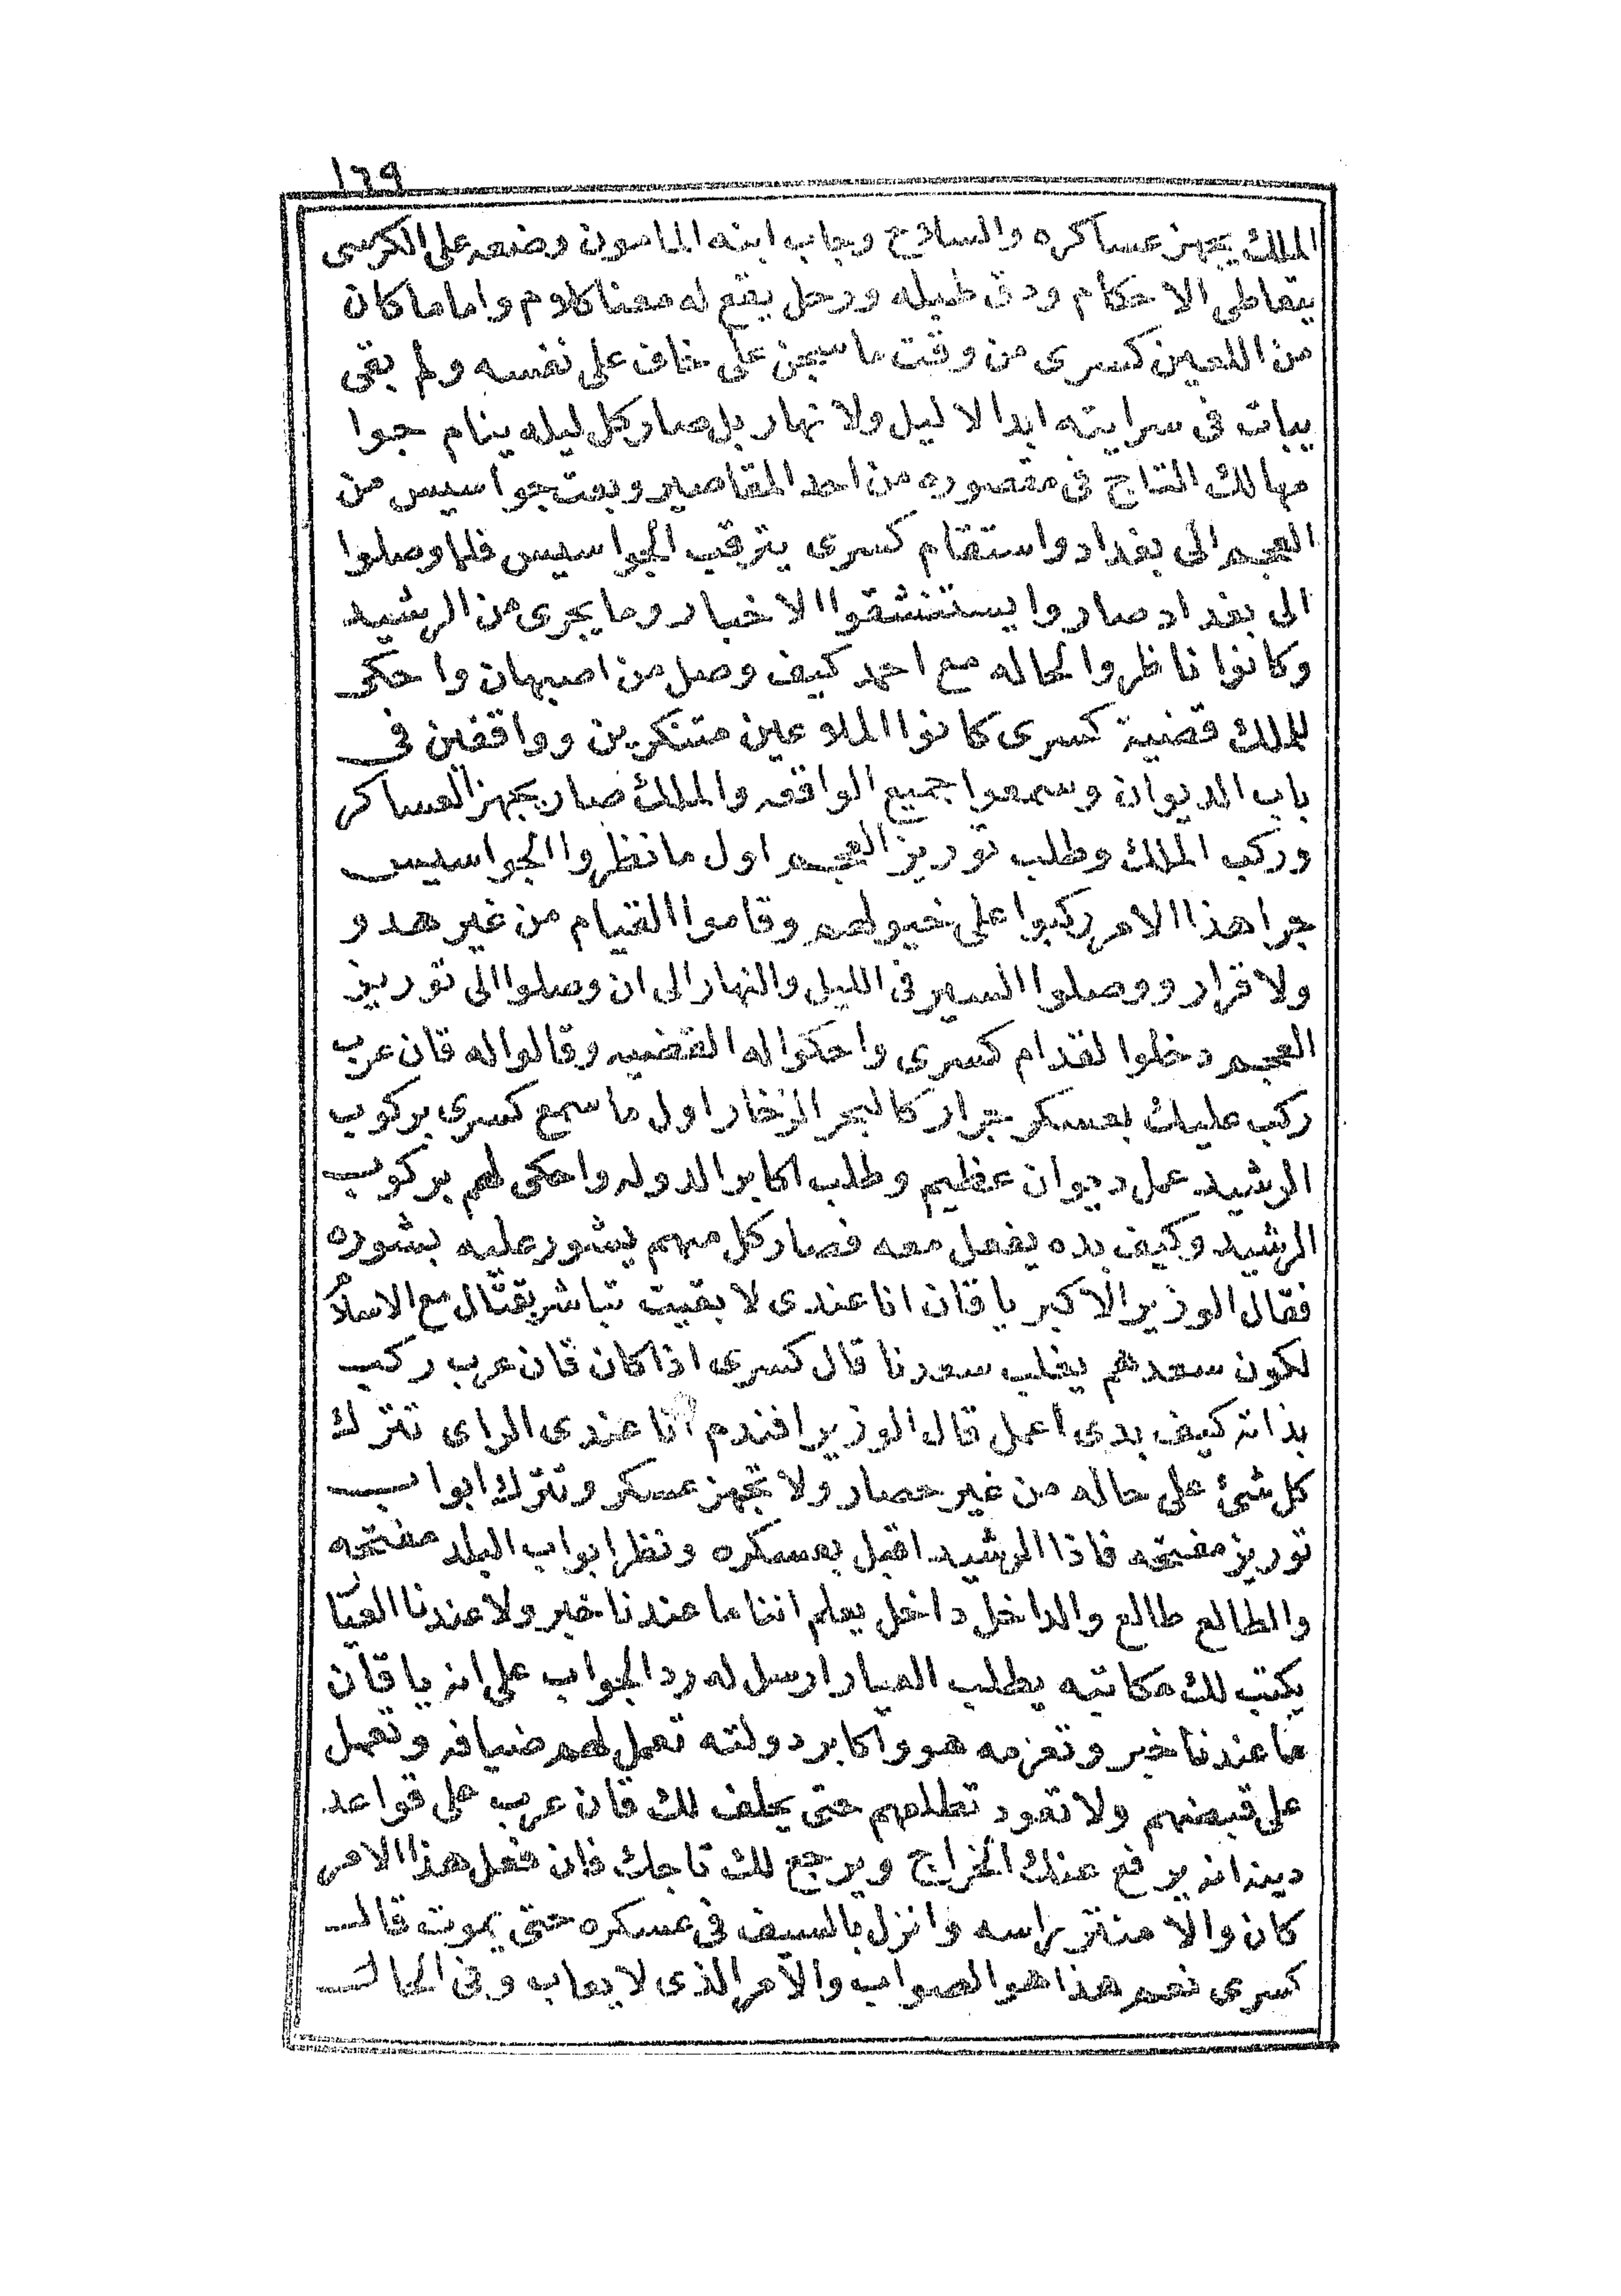 ١٦٩
الملك يجهز عساكره والسلاح وجاب ابنه المامون وضعه على الكرسى
يتعاطى الاحكام ودق طبله ورحل يقع له معنا كلام واما ما كان
من اللعين كسرى من وقت ما سجن على خاف على نفسه ولم بقى
يبات فى سرايته ابدا لا ليل ولا نهار بل صار كل ليله ينام جوا
مهالك التاج فى مقصوره من احد المقاصير وبعت جواسيس من
العجم الى بغداد واستقام كسرى يترقب الجواسيس فلما وصلوا
الى بغداد صاروا يستنشقوا الاخبار وما يجرى من الرشيد
وكانوا ناظروا لحاله مع احمد كيف وصل من اصبهان واحكى
للملك قضية كسرى كانوا الملاعين متنكرين وواقفين فى
باب الديوان وسمعوا جميع الواقعه والملك صار يجهز العساكر
وركب الملك وطلب توريز العجم اول ما نظروا الجواسيس
جرا هذا الامر ركبوا على خيولهم وقاموا القيام من غير هدو
ولا قرار ووصلوا السير فى الليل والنهار الى ان وصلوا الى توريز
العجم دخلوا لقدام كسرى واحكوا له القضيه وقالوا له قان عرب
ركب عليك بعسكر جرار كالبحر الزخار اول ما سمع كسرى بركوب
الرشيد عمل ديوان عظيم وطلب اكابر الدوله واحكى لهم بركوب
الرشيد وكيف بده يفعل معه فصار كل منهم يشور عليه بشوره
فقال الوزير الاكبر يا قان انا عندى لا بقيت تباشر بقتال مع الاسلام
لكون سعدهم يغلب سعدنا قال كسرى اذا كان قان عرب ركب
بذاته كيف بدى اعمل قال الوزير افندم انا عندى الراى تترك
كل شئ على حاله من غير حصار ولا تجهز عسكر وتترك ابواب
توريز مفتحه فاذا الرشيد اقبل بعسكره ونظر ابواب البلد مفتحه
والطالع طالع والداخل داخل يعلم اننا ما عندنا خبر ولا عندنا العيا
يكتب لك مكاتبه يطلب العيار ارسل له رد الجواب على انه يا قان
ما عندنا خبر وتعزمه هو واكابر دولته تعمل لهم ضيافه وتعمل
على قبضهم ولا تعود تطلعهم حتى يحلف لك قان عرب على قواعد
دينه انه يرفع عنك الخراج ويرجع لك تاجك فان فعل هذا الامر
كان والا راسه وانزل بالسيف فى عسكره حتى يموت قال
كسرى نعم هذا هو الصواب والامر الذى لا يعاب وفى الحال